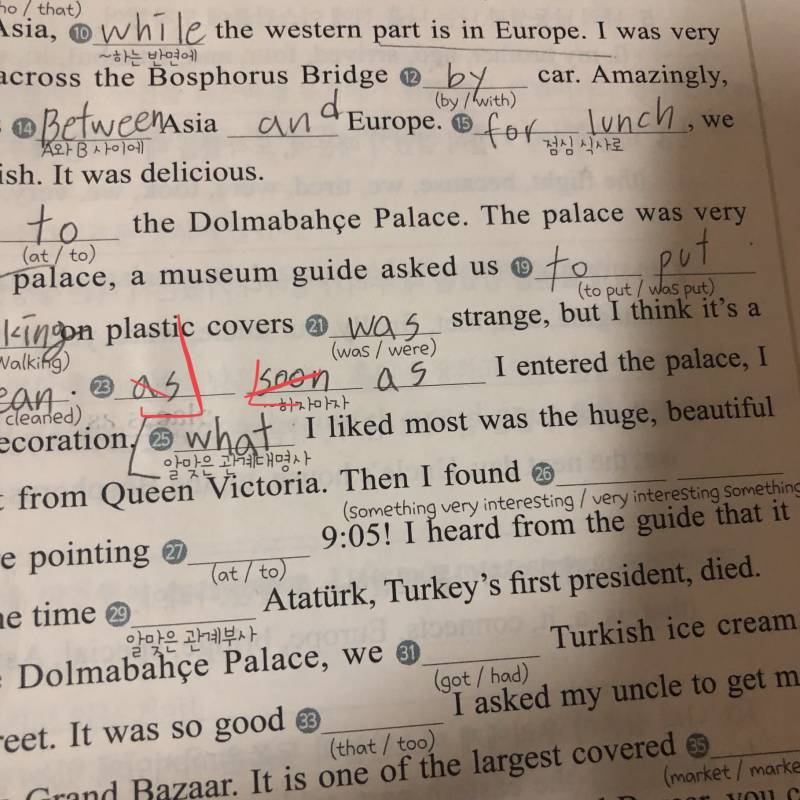 / that)
Asia, 10 while the western part is in Europe. I was very
~하는 반면에
across the Bosphorus Bridge 12 by car. Amazingly,
(by / with)
14 Between Asia and Europe. 15 for lunch, we
A와 B 사이에 점심 식사로
ish. It was delicious.
to the Dolmabahçe Palace. The palace was very
(at / to)
palace, a museum guide asked us 19 to put
(to put / was put)
king on plastic covers 21 was strange, but I think it's a
Walking) (was / were)
ean. 23 as soon as I entered the palace, I
cleaned) ~하자마자
ecoration. 25 what I liked most was the huge, beautiful
알맞은 관계대명사
from Queen Victoria. Then I found 26
(something very interesting / very interesting something
e pointing 27 9:05! I heard from the guide that it
(at / to)
e time 29 Atatürk, Turkey's first president, died.
알맞은 관계부사
Dolmabahçe Palace, we 31 Turkish ice cream
(got / had)
reet. It was so good 33 I asked my uncle to get m
(that / too)
Grand Bazaar. It is one of the largest covered 35
(market / marke